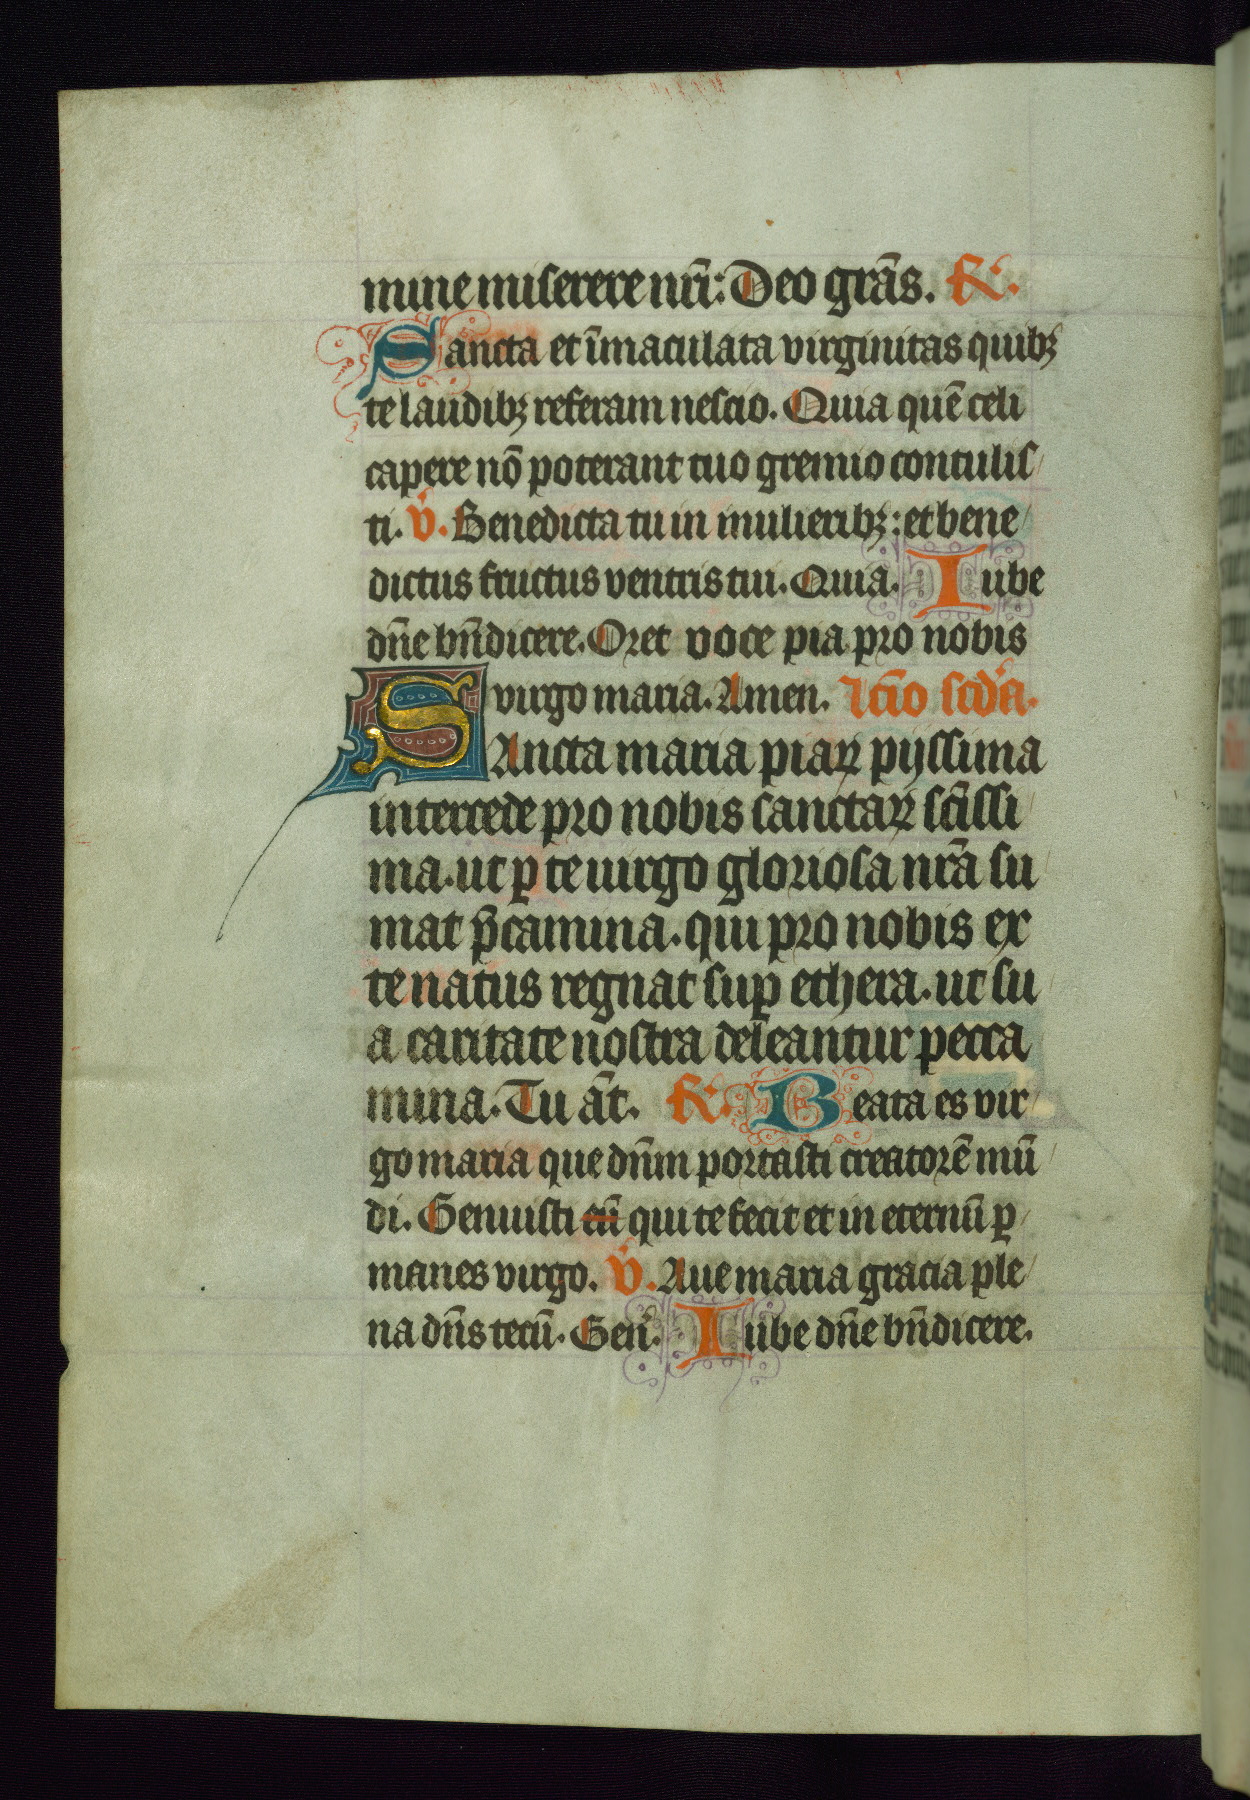 mine miserere nr̄i: Deo grãs. R̷.
Sancta et īmaculata virginitas quibꝫ
te laudibꝫ referam nescio. Quia quē celi
capere nō poterant tuo gremio contulis
ti. V̷. Benedicta tu in mulieribꝫ: et bene
dictus fructus ventris tui. Quia. Iube
dn̄e bn̄dicere. Oret voce pia pro nobis
virgo maria. Amen. lc̄io sc̄d'a.
SAncta maria piaꝝ pijssima
intercede pro nobis sanctaꝝ sc̄issi
ma. ut ꝑ te uirgo gloriosa nr̄a su
mat p̄camina. qui pro nobis ex
te natus regnat suꝑ ethera. ut su
a caritate nostra deleantur pecca
mina. Tu āt. R̷. Beata es vir
go maria que dn̄m portasti creatorē mū
di. Genuisti eū qui te fecit et in eternū ꝑ
manes virgo. V̷. Aue maria gracia ple
na dn̄s tecū. Gen̄. Iube dn̄e bn̄dicere.